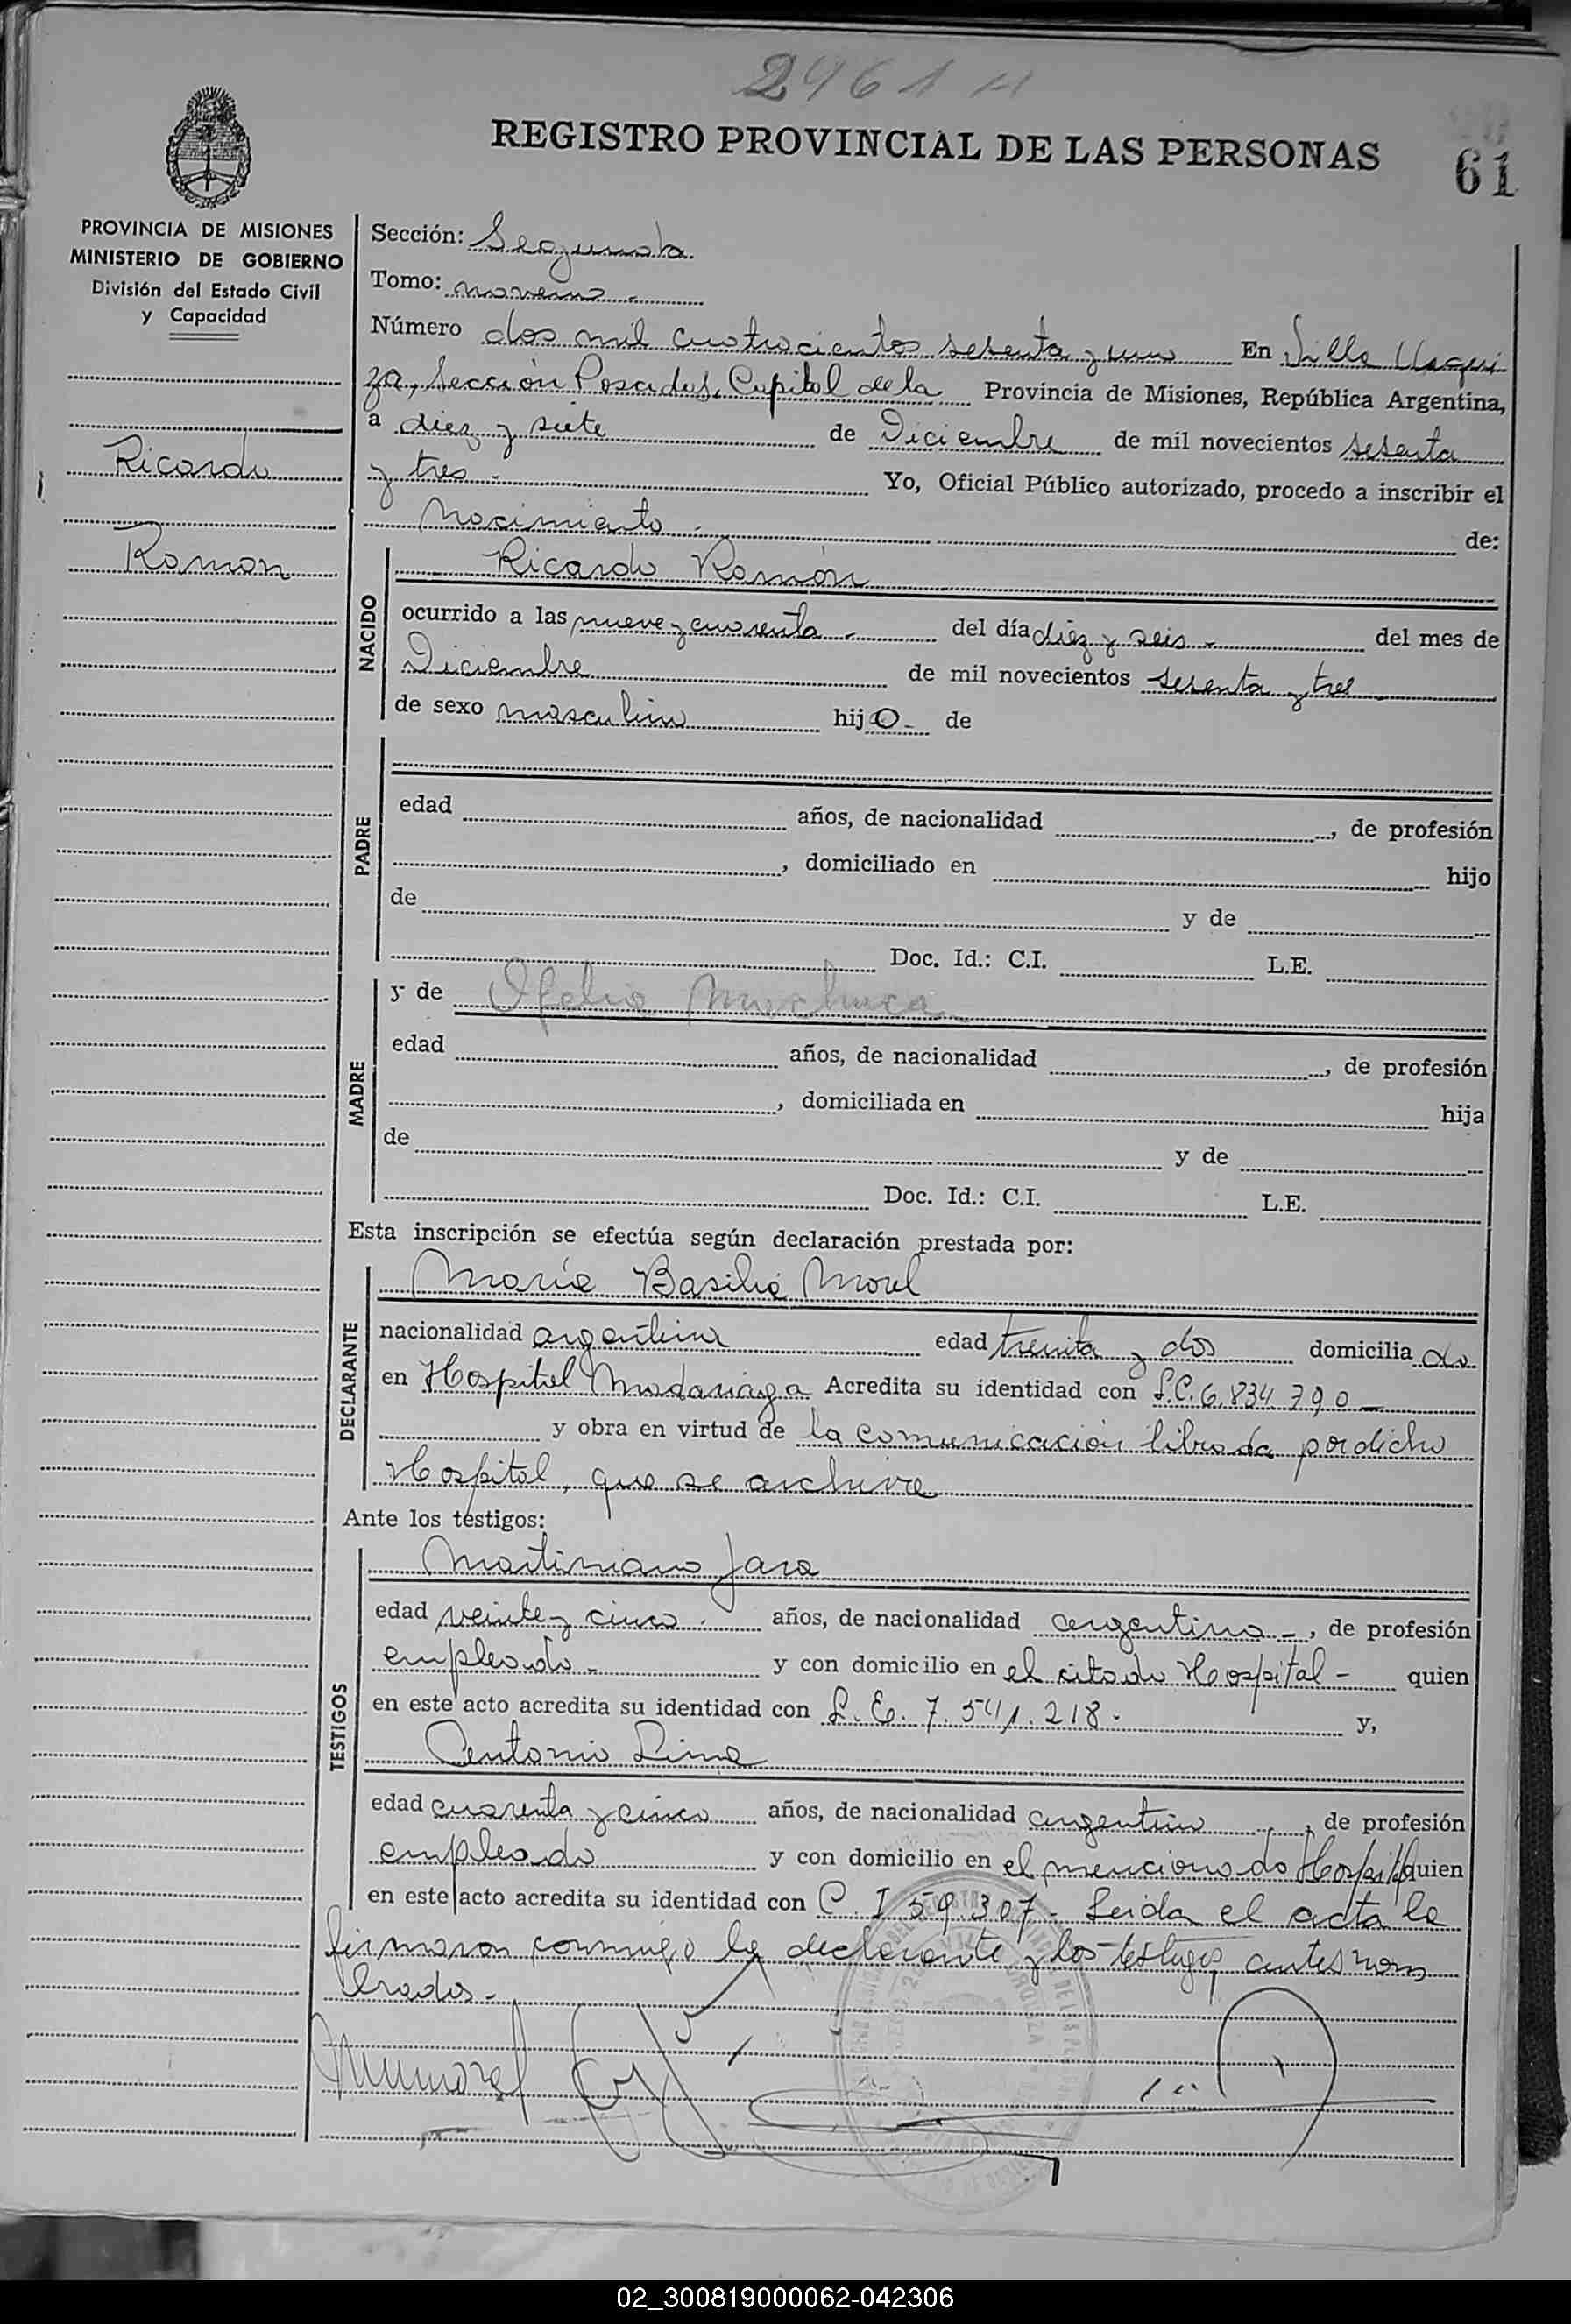 2461
REGISTRO PROVINCIAL DE LAS PERSONAS
61
PROVINCIA DE MISIONES
MINISTERIO DE GOBIERNO
División del Estado Civil
y Capacidad
Ricardo
Ramon
Sección: Segunda
Tomo: noveno
Número dos mil cuatrocientos sesenta y uno En Villa Urqui
za, Sección Posadas, Capital de la Provincia de Misiones, República Argentina,
a diez y siete de Diciembre de mil novecientos sesenta
y tres - Yo, Oficial Público autorizado, procedo a inscribir el
Nacimiento - de:
NACIDO
Ricardo Ramón
ocurrido a las nueve y cuarenta - del día diez y seis - del mes de
Diciembre de mil novecientos sesenta y tres
de sexo masculino hijo - de
PADRE
edad años, de nacionalidad , de profesión
, domiciliado en hijo
de y de
Doc. Id.: C.I. L.E.
MADRE
y de Ofelia Machuca
edad años, de nacionalidad , de profesión
, domiciliada en hija
de y de
Doc. Id.: C.I. L.E.
Esta inscripción se efectúa según declaración prestada por:
DECLARANTE
María Basilia Morel
nacionalidad argentina edad treinta y dos domicilia da
en Hospital Madariaga Acredita su identidad con L.C. 6.834.790 -
y obra en virtud de la comunicación librada por dicho
Hospital, que se archiva
Ante los testigos:
TESTIGOS
Martiniano Jara
edad veinte y cinco - años, de nacionalidad argentina -, de profesión
empleado - y con domicilio en el citado Hospital - quien
en este acto acredita su identidad con L.E. 7.541.218. y,
Antonio Lima
edad cuarenta y cinco años, de nacionalidad argentino , de profesión
empleado y con domicilio en el mencionado Hospital quien
en este acto acredita su identidad con C. I 59.307 - Leida el acta la
firmaron conmigo la declarante y los testigos antes nom
brados -
02_300819000062-042306